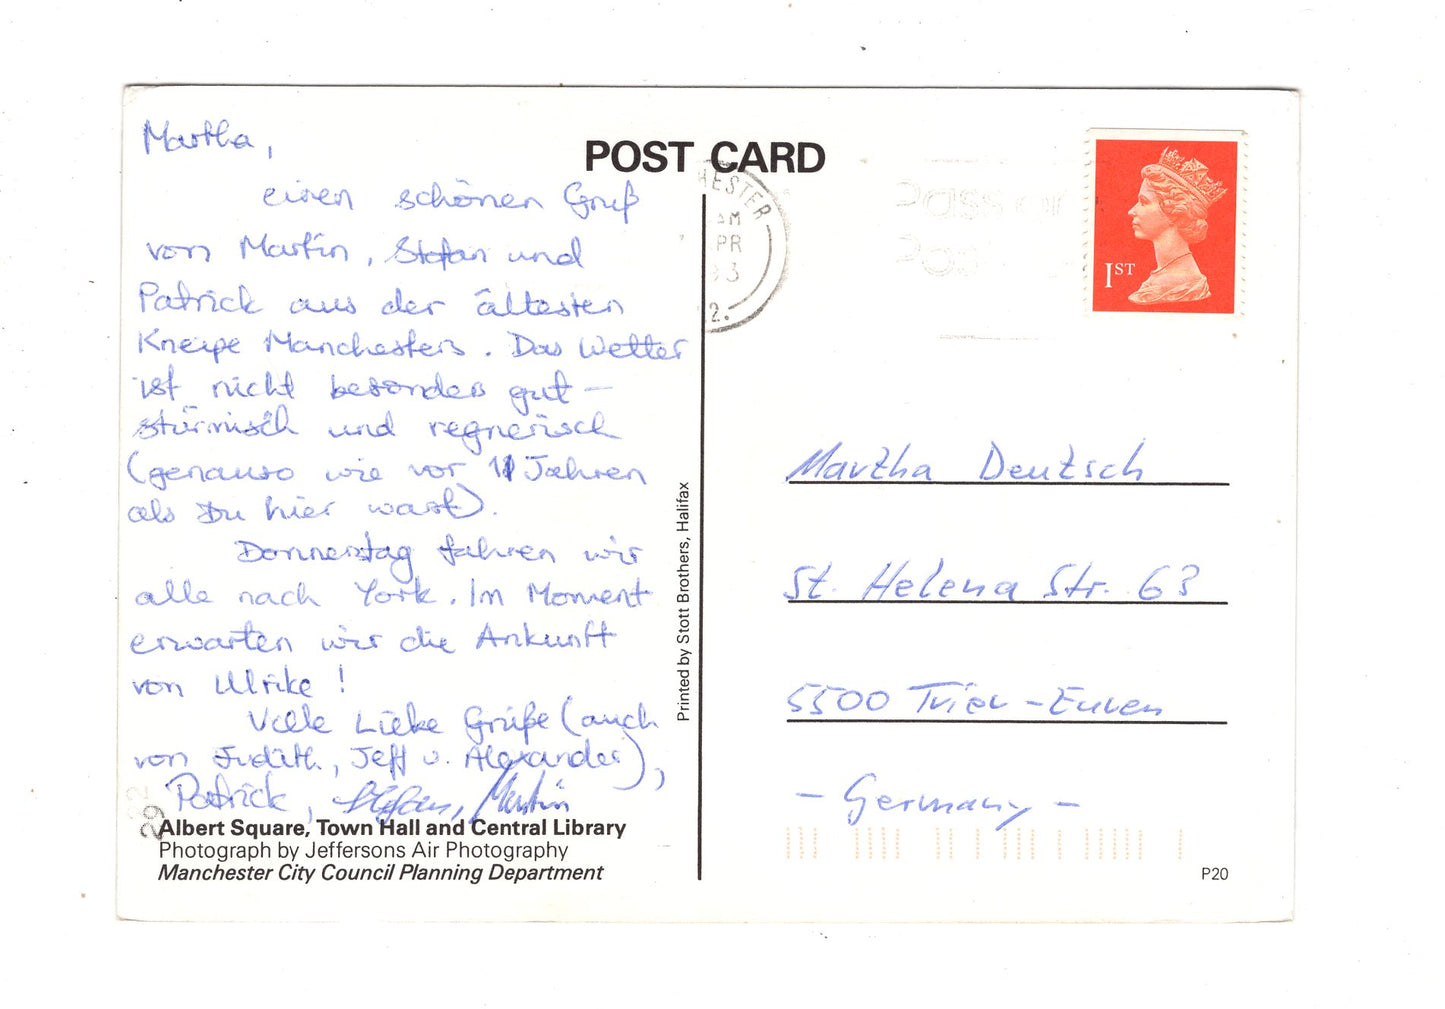 POST CARD
Martha,
einen schönen Gruß
von Martin, Stefan und
Patrick aus der ältesten
Kneipe Manchesters. Das Wetter
ist nicht besonders gut –
stürmisch und regnerisch
(genauso wie vor 11 Jahren
als Du hier warst).
Donnerstag fahren wir
alle nach York. Im Moment
erwarten wir die Ankunft
von Ulrike!
Viele Liebe Grüße (auch
von Judith, Jeff u. Alexander),
Patrick, Stefan, Martin
Albert Square, Town Hall and Central Library
Photograph by Jeffersons Air Photography
Manchester City Council Planning Department
Printed by Stott Brothers, Halifax
HESTER
AM
PR
2.
1ST
Martha Deutsch
St. Helena Str. 63
5500 Trier – Euren
– Germany –
P20